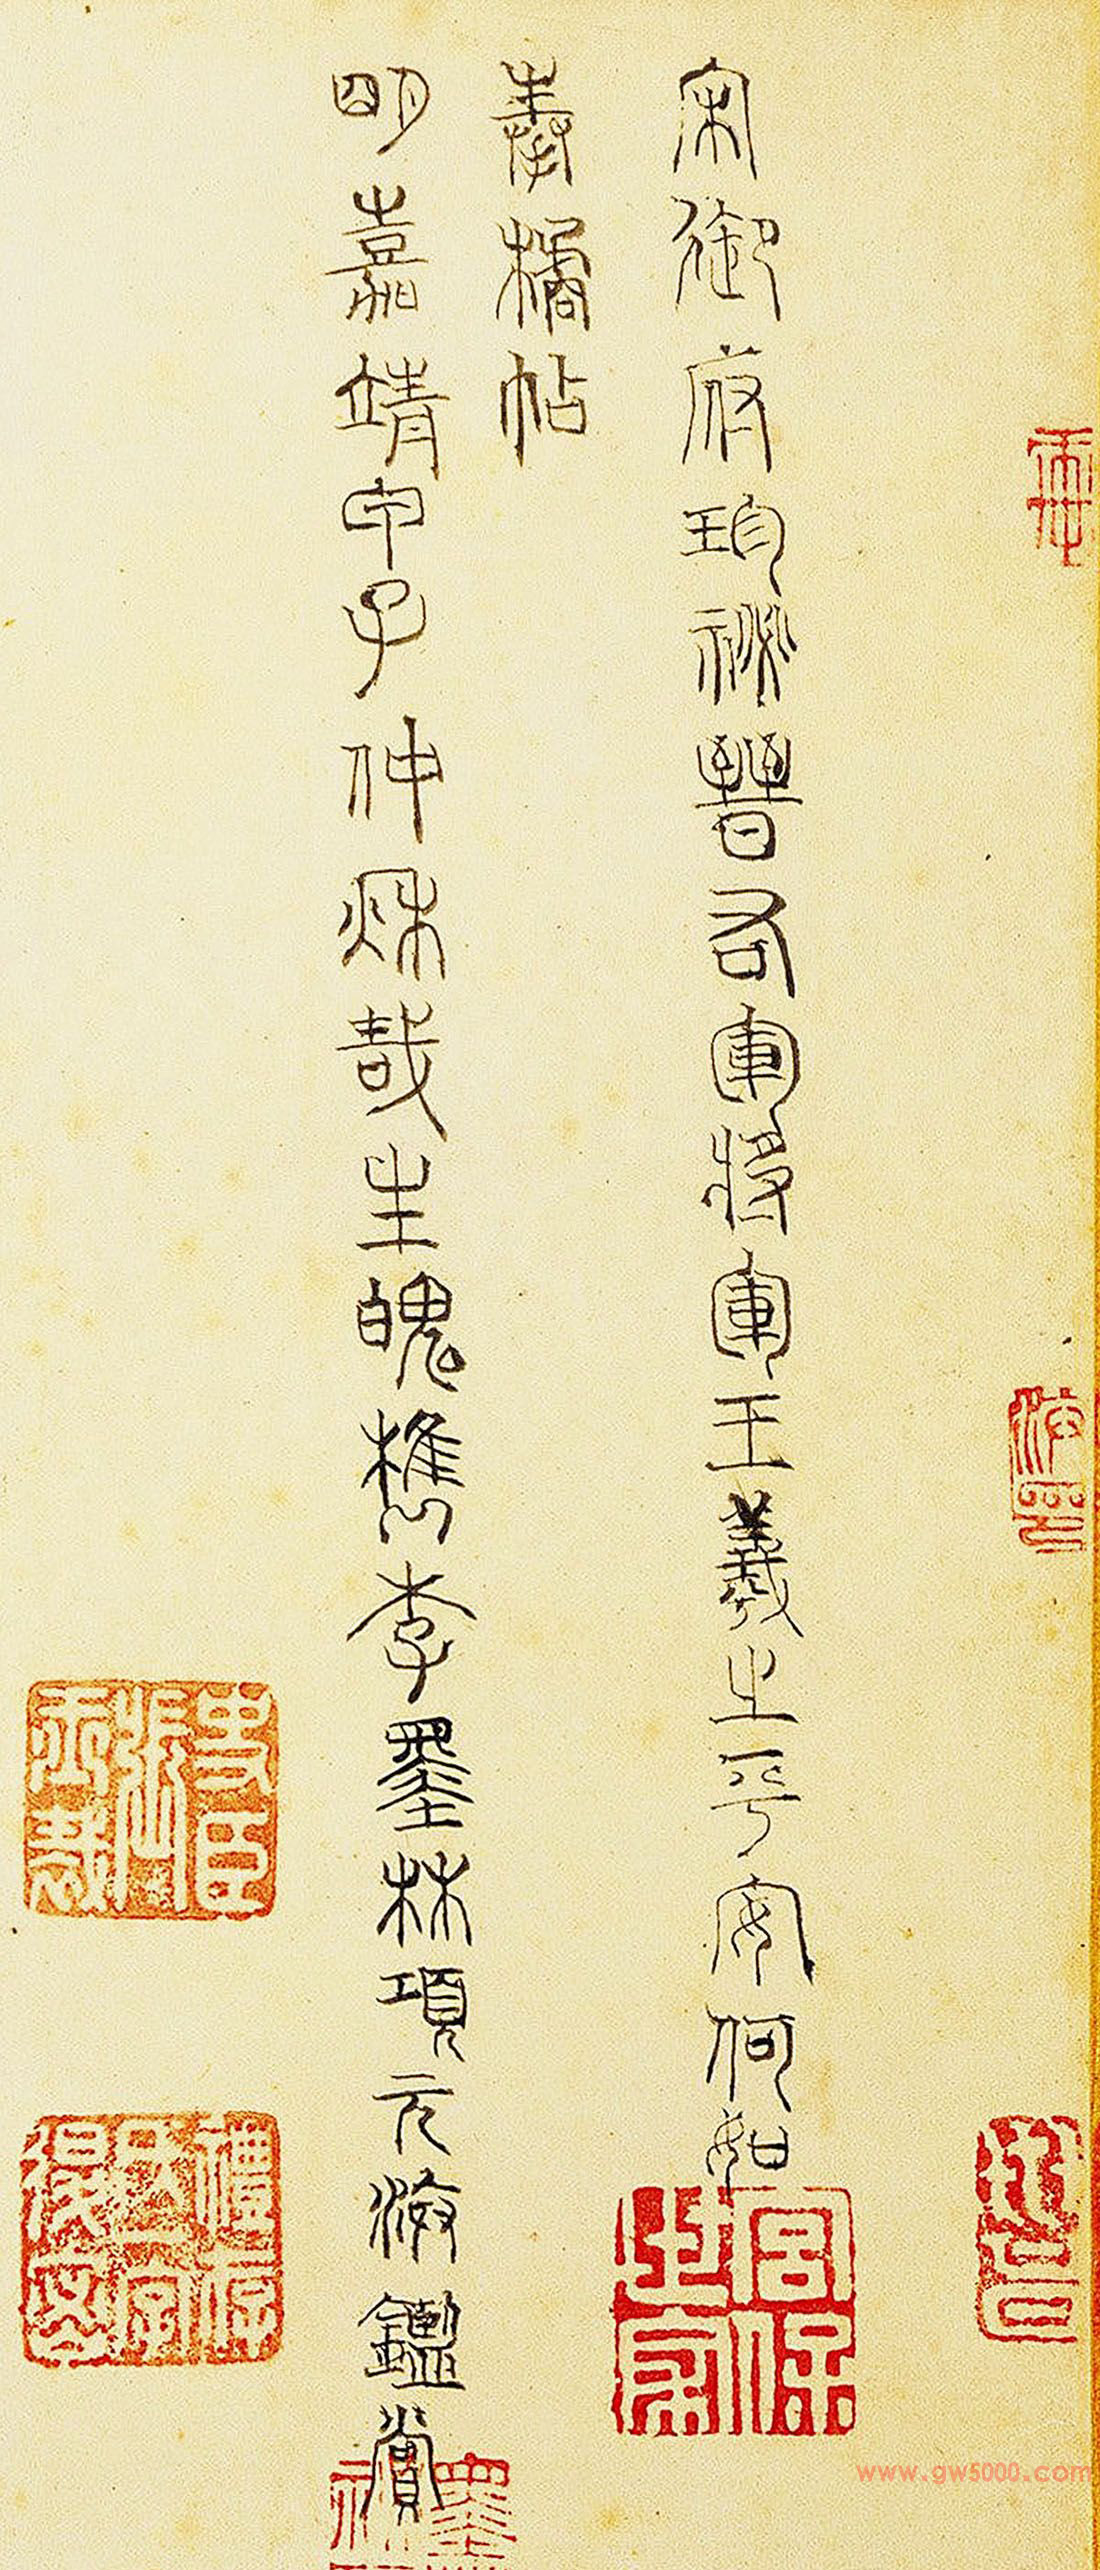 宋御府珍祕晉右軍將軍王羲之平安何如
奉橘帖
明嘉靖甲子仲秋哉生魄檇李墨林項元汴鑑賞
宮保之家
www.gw5000.com